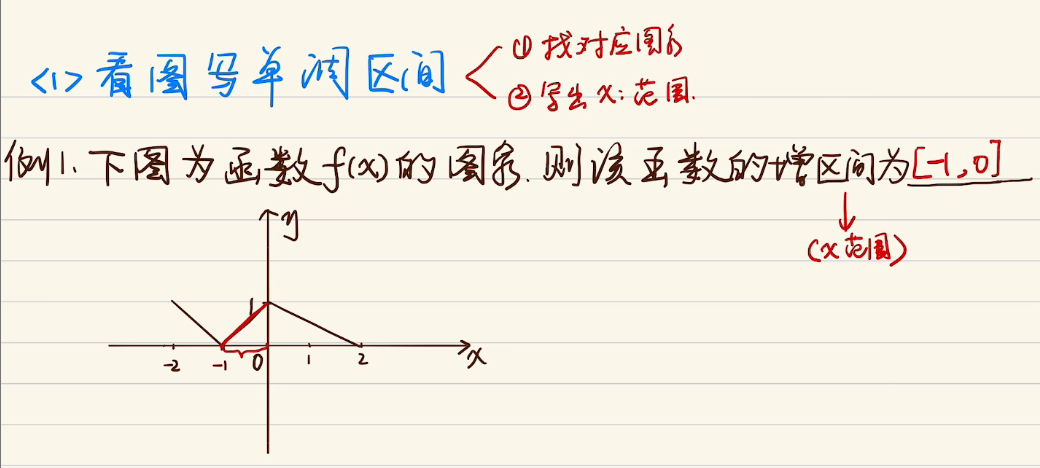 <1> 看图写单调区间
① 找对应图象
② 写出 x: 范围.
例1. 下图为函数f(x)的图象. 则该函数的增区间为[-1,0]
(x范围)
y
1
-2 -1 0 1 2 x